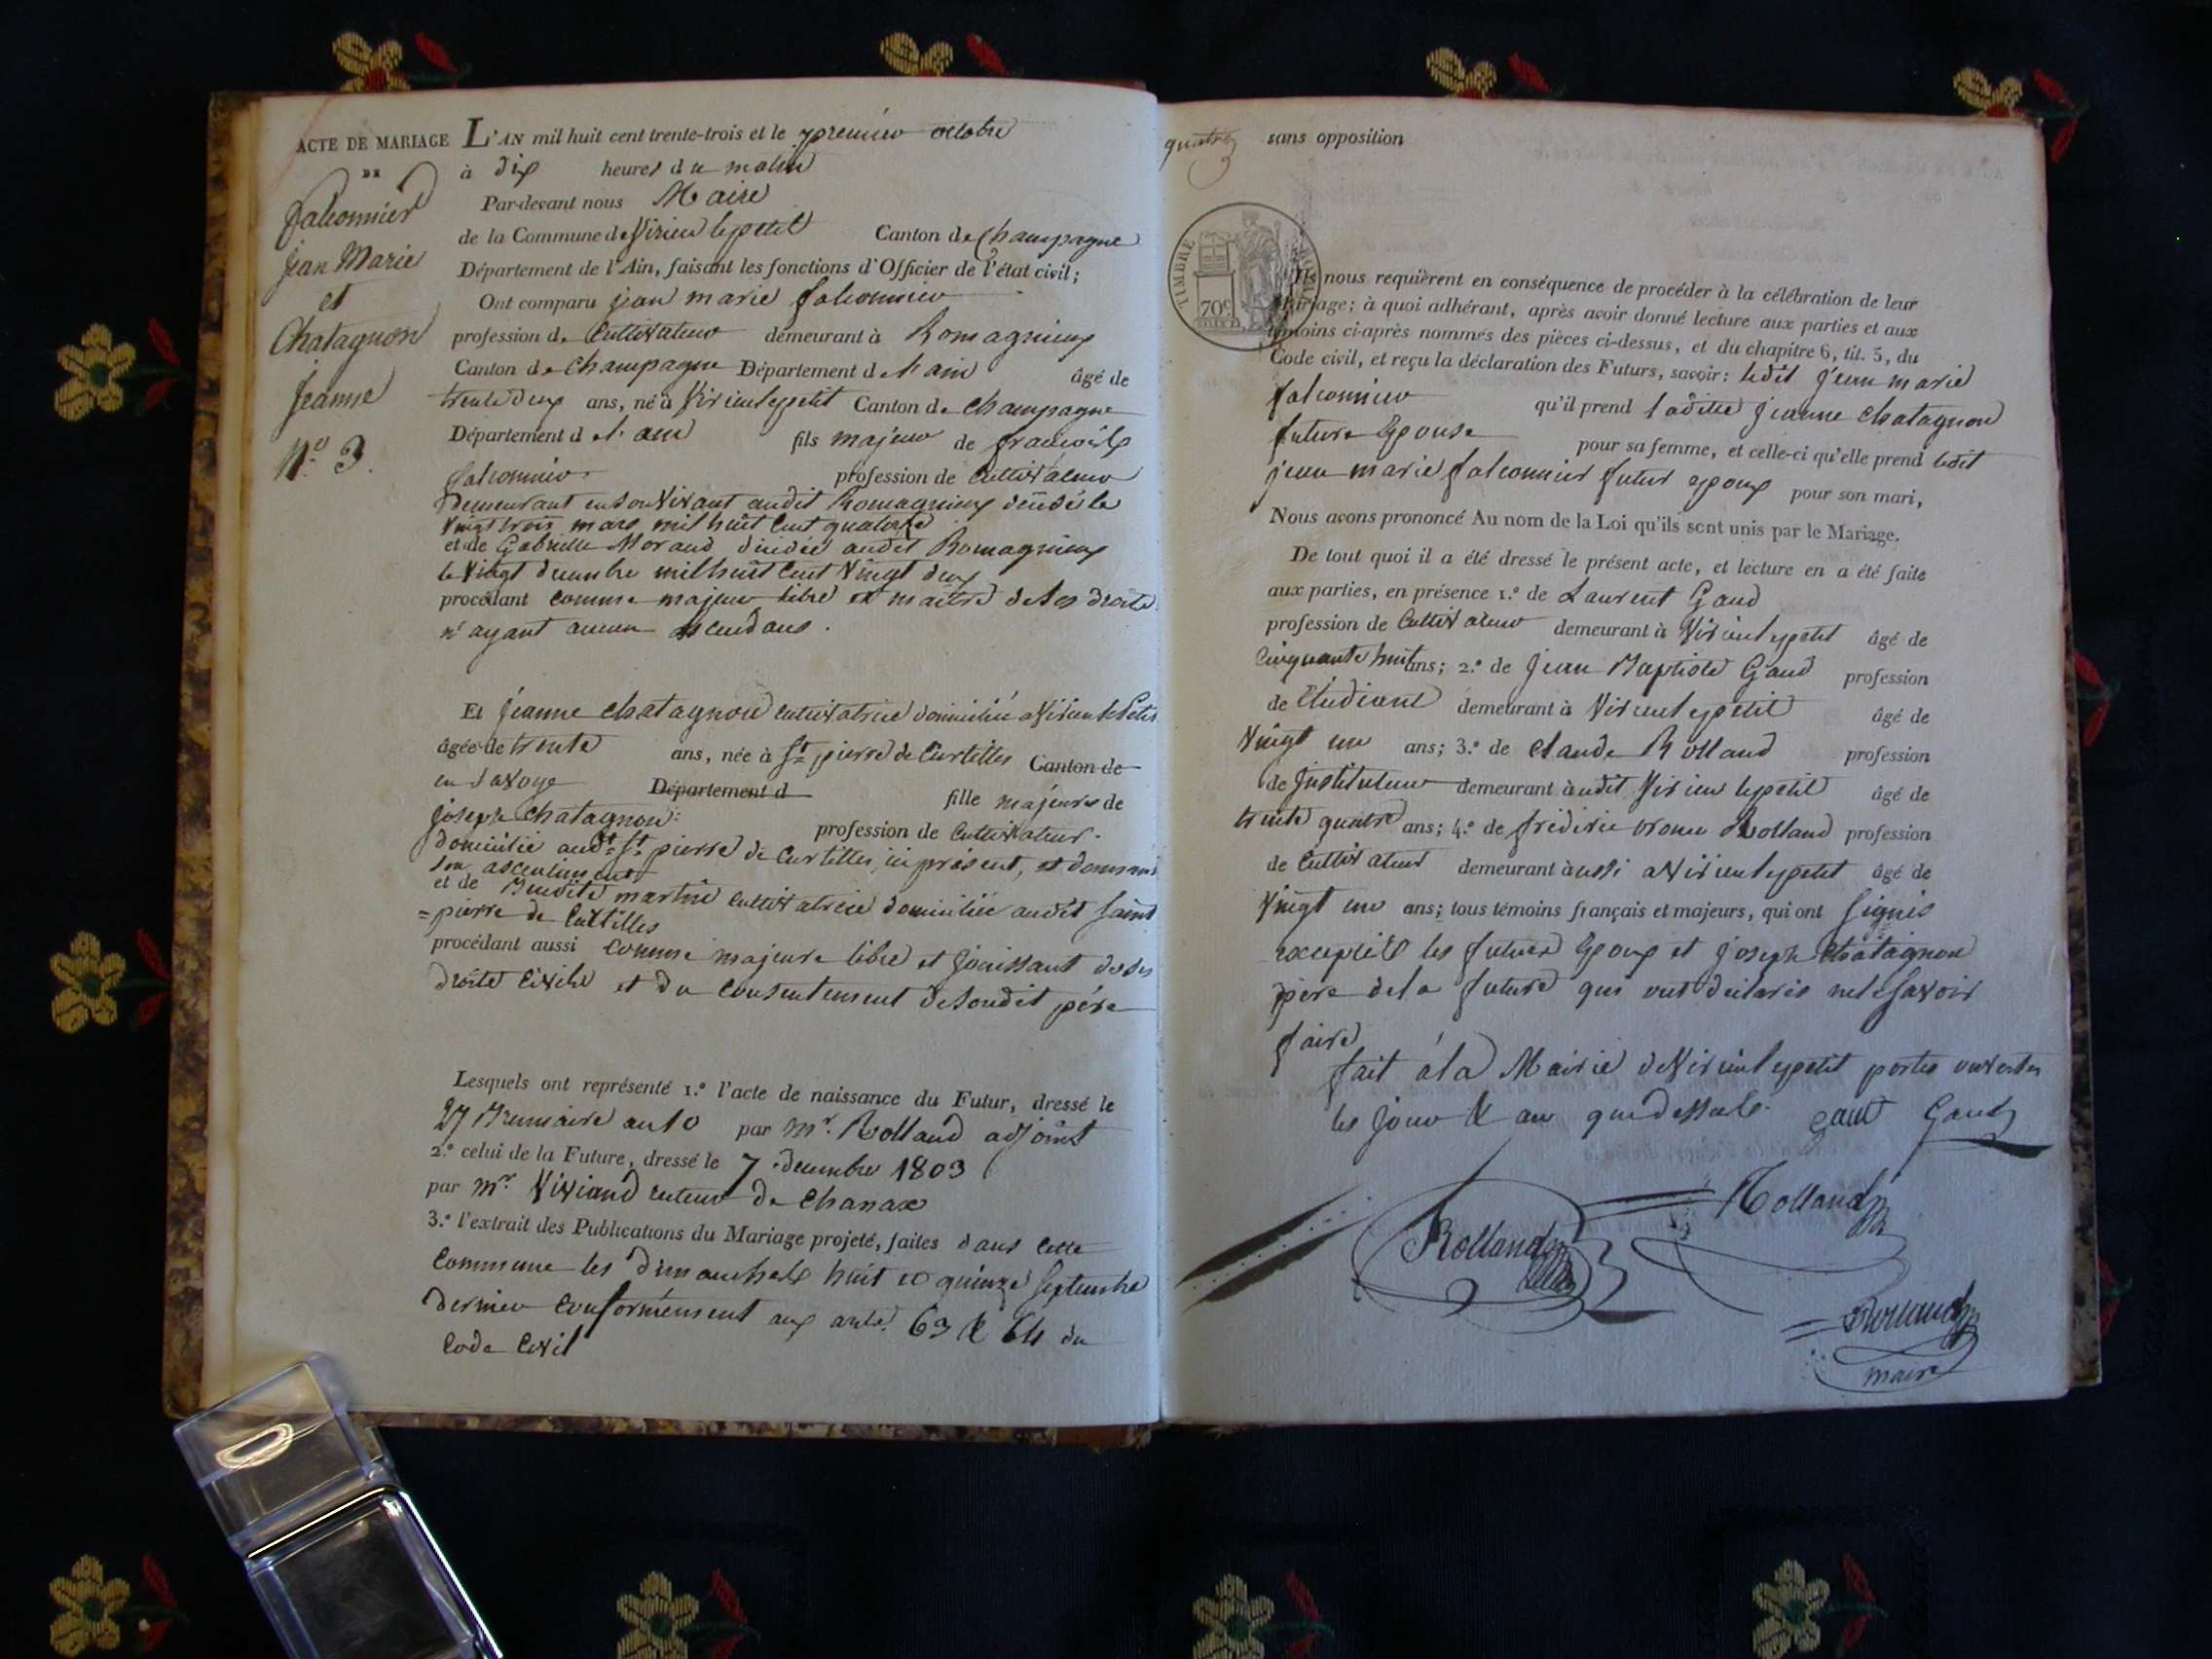 ACTE DE MARIAGE
DE
falconnier
jean Marie
et
Chatagnon
jeanne
N.º 3.
L'AN mil huit cent trente-trois et le premier octobre
à dix heures du matin
Par-devant nous Maire
de la Commune de Virieu lepetit Canton de Champagne
Département de l'Ain, faisant les fonctions d'Officier de l'état civil;
Ont comparu jean marie falconnier
profession de Cultivateur demeurant à Romagnieux
Canton de Champagne Département de l'ain âgé de
trente deux ans, né à Virieulepetit Canton de Champagne
Département d el'ain fils majeur de francois
falconnier profession de Cultivateur
Demeurant en son Vivant audit Romagnieux décédé le
Vingt trois mars mil huit Cent quatorze
et de Gabrielle Morand décédée audit Romagnieux
le Vingt decembre mil huit Cent Vingt deux
procédant comme majeur libre et maitre de ses droits
n'ayant aucun ascendans.
Et jeanne chatagnon cultivatrice domiciliée a Virieu le Petit
âgée de trente ans, née à St pierre de Curtilles Canton de
en Savoye Département d fille majeure de
joseph Chatagnon profession de Cultivateur
domicilié audt St pierre de Curtilles, ici présent, et donnant
son assentiment
et de Benoite martin Cultivatrice domiciliée audit saint
=pierre de Curtilles
procédant aussi comme majeure libre et jouissant de ses
droits Civils et du Consentement de sondit père
Lesquels ont représenté 1.º l'acte de naissance du Futur, dressé le
27 Brumaire an 10 par mr. Rolland adjoint
2.º celui de la Future, dressé le 7 decembre 1803
par mr. Viviand recteur de Chanax
3.º l'extrait des Publications du Mariage projeté, faites dans Cette
Commune les dimanches huit et quinze Septembre
dernier Conformément aux artes. 63 & 64 du
Code Civil
quatre
sans opposition
TIMBRE ROYAL
70c
Ils nous requièrent en conséquence de procéder à la célébration de leur
Mariage; à quoi adhérant, après avoir donné lecture aux parties et aux
témoins ci-après nommés des pièces ci-dessus, et du chapitre 6, tit. 5, du
Code civil, et reçu la déclaration des Futurs, savoir: ledit jean marie
falconnier qu'il prend ladite jeanne chatagnon
future Epouse pour sa femme, et celle-ci qu'elle prend ledit
jean marie falconnier futur epoux pour son mari,
Nous avons prononcé Au nom de la Loi qu'ils sont unis par le Mariage.
De tout quoi il a été dressé le présent acte, et lecture en a été faite
aux parties, en présence 1.º de Laurent Gaud
profession de Cultivateur demeurant à Virieulepetit âgé de
Cinquante huit ans; 2.º de Jean Baptiste Gaud profession
de Etudiant demeurant à Virieulepetit âgé de
Vingt un ans; 3.º de claude Rolland profession
de Instituteur demeurant àudit Virieu lepetit âgé de
trente quatre ans; 4.º de fréderic Rolland profession
de Cultivateur demeurant àussi a Virieulepetit âgé de
Vingt un ans; tous témoins français et majeurs, qui ont signés
excepté les futurs Epoux et joseph Chatagnon
père dela future qui ont déclarés nele savoir
faire
fait àla Mairie de Virieulepetit portes ouvertes
les jour & an que dessus. gaud Gaud
Rolland Rolland
maire